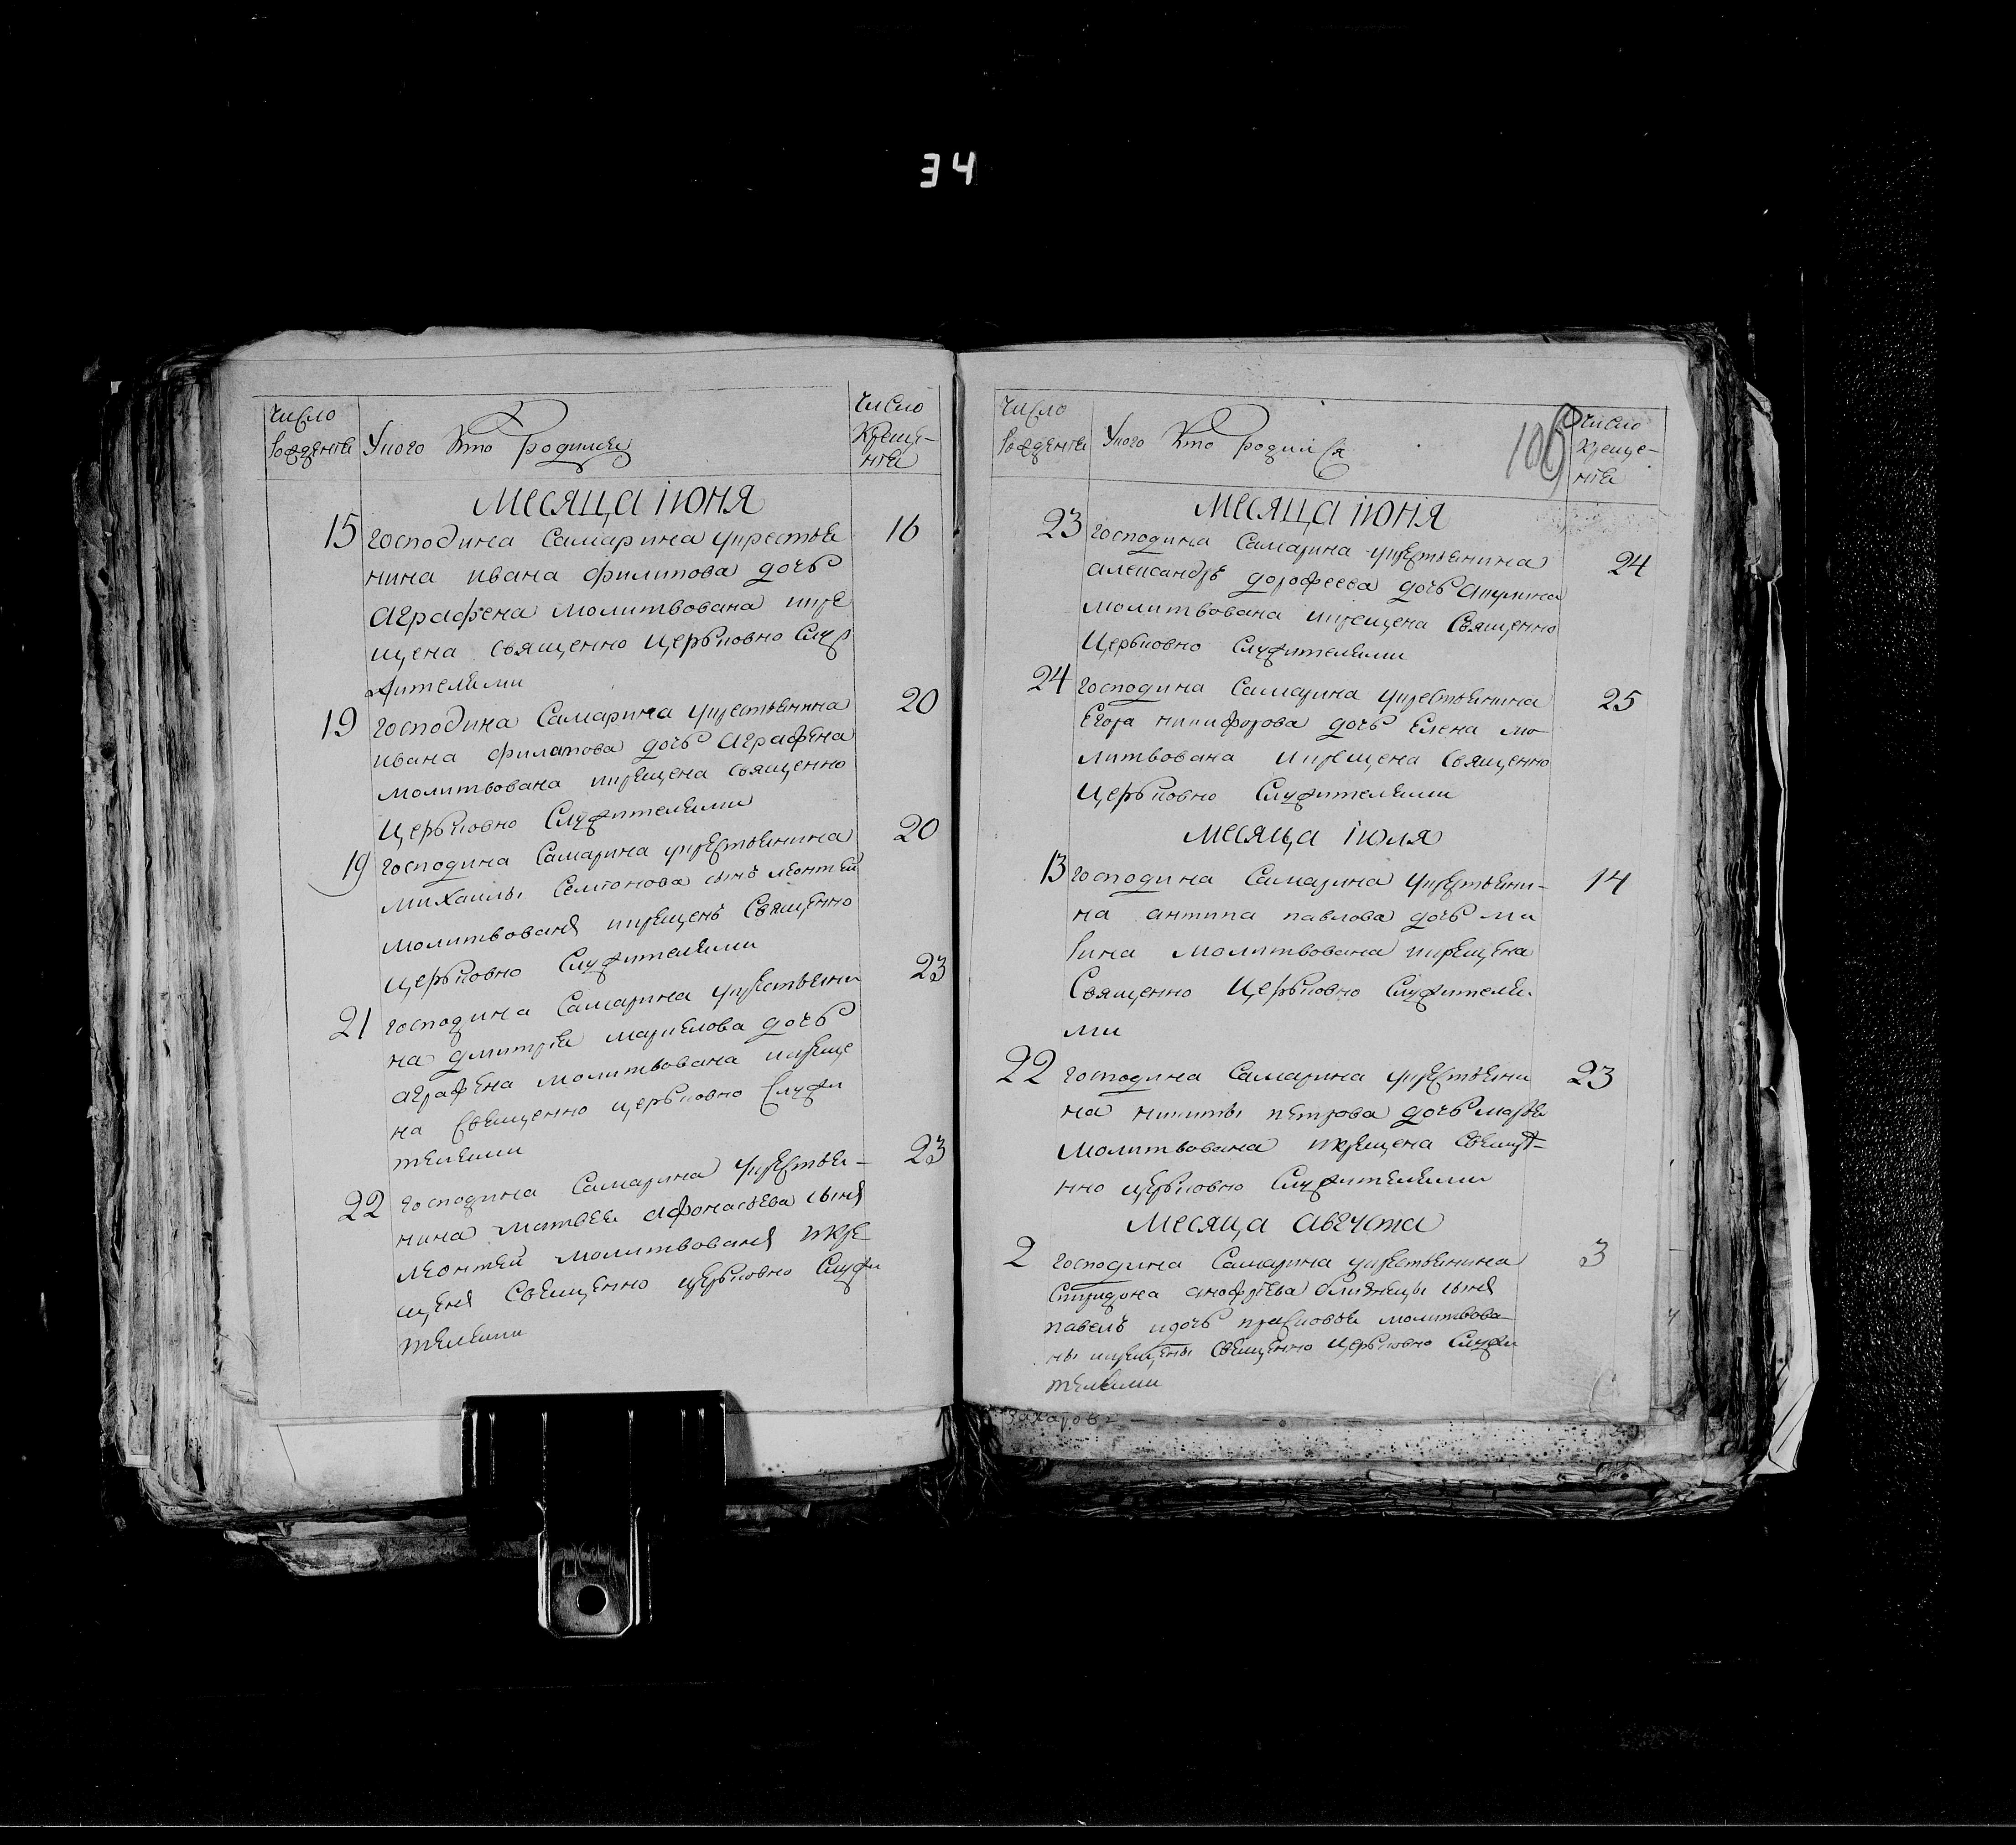 34
число
рожденія
У кого кто родился
число
креще-
нія
Месяца июня
15 господина Самарина укрестья 16
нина ивана филипова дочь
Аграфена молитвована икре
щена священно церьковно Служ
жителями
19 господина Самарина укрестьянина 20
ивана филатова дочь Аграфена
молитвована икрещена священно
Церьковно Служителями
19 господина Самарина укрестьянина 20
михаилы Семіонова сынъ леонтей
молитвованъ икрещенъ Священно
церьковно Служителями
21 господина Самарина укрестьяни 23
на дмитрія маркелова дочь
аграфена молитвована икреще
на Свящщенно церьковно Служи
телями
22 господина Самарина укрестья- 23
нина матвея афонасьева сынъ
леонтей молитвованъ икре
щенъ Священно церьковно Служи
телями
число
рожденія
У кого кто родился
106
число
креще-
нія
Месяца июня
23 господина Самарина укрестьянина 24
александръ дорофеева дочь Акулина
молитвована икрещена Священно
Церьковно Служителями
24 господина Самарина укрестьянина 25
Егора никифорова дочь Елена мо-
литвована икрещена Священно
Церьковно Служителями
месяца июля
13 господина Самарина укрестьяни- 14
на антипа павлова дочь ма
рина молитвована икрещена
Священно Церьковно Служителя-
ми
22 господина Самарина укрестьяни 23
на никиты петрова дочь марья
молитвована икрещена Свяще-
нно церьковно Служителями
Месяца августа
2 господина Самарина укрестьянина 3
Спиридона анофріева близнецы сынъ
павелъ идочь прасковья молитвова-
ны икрещены Священно Церьковно Служи
телями
Захаровъ